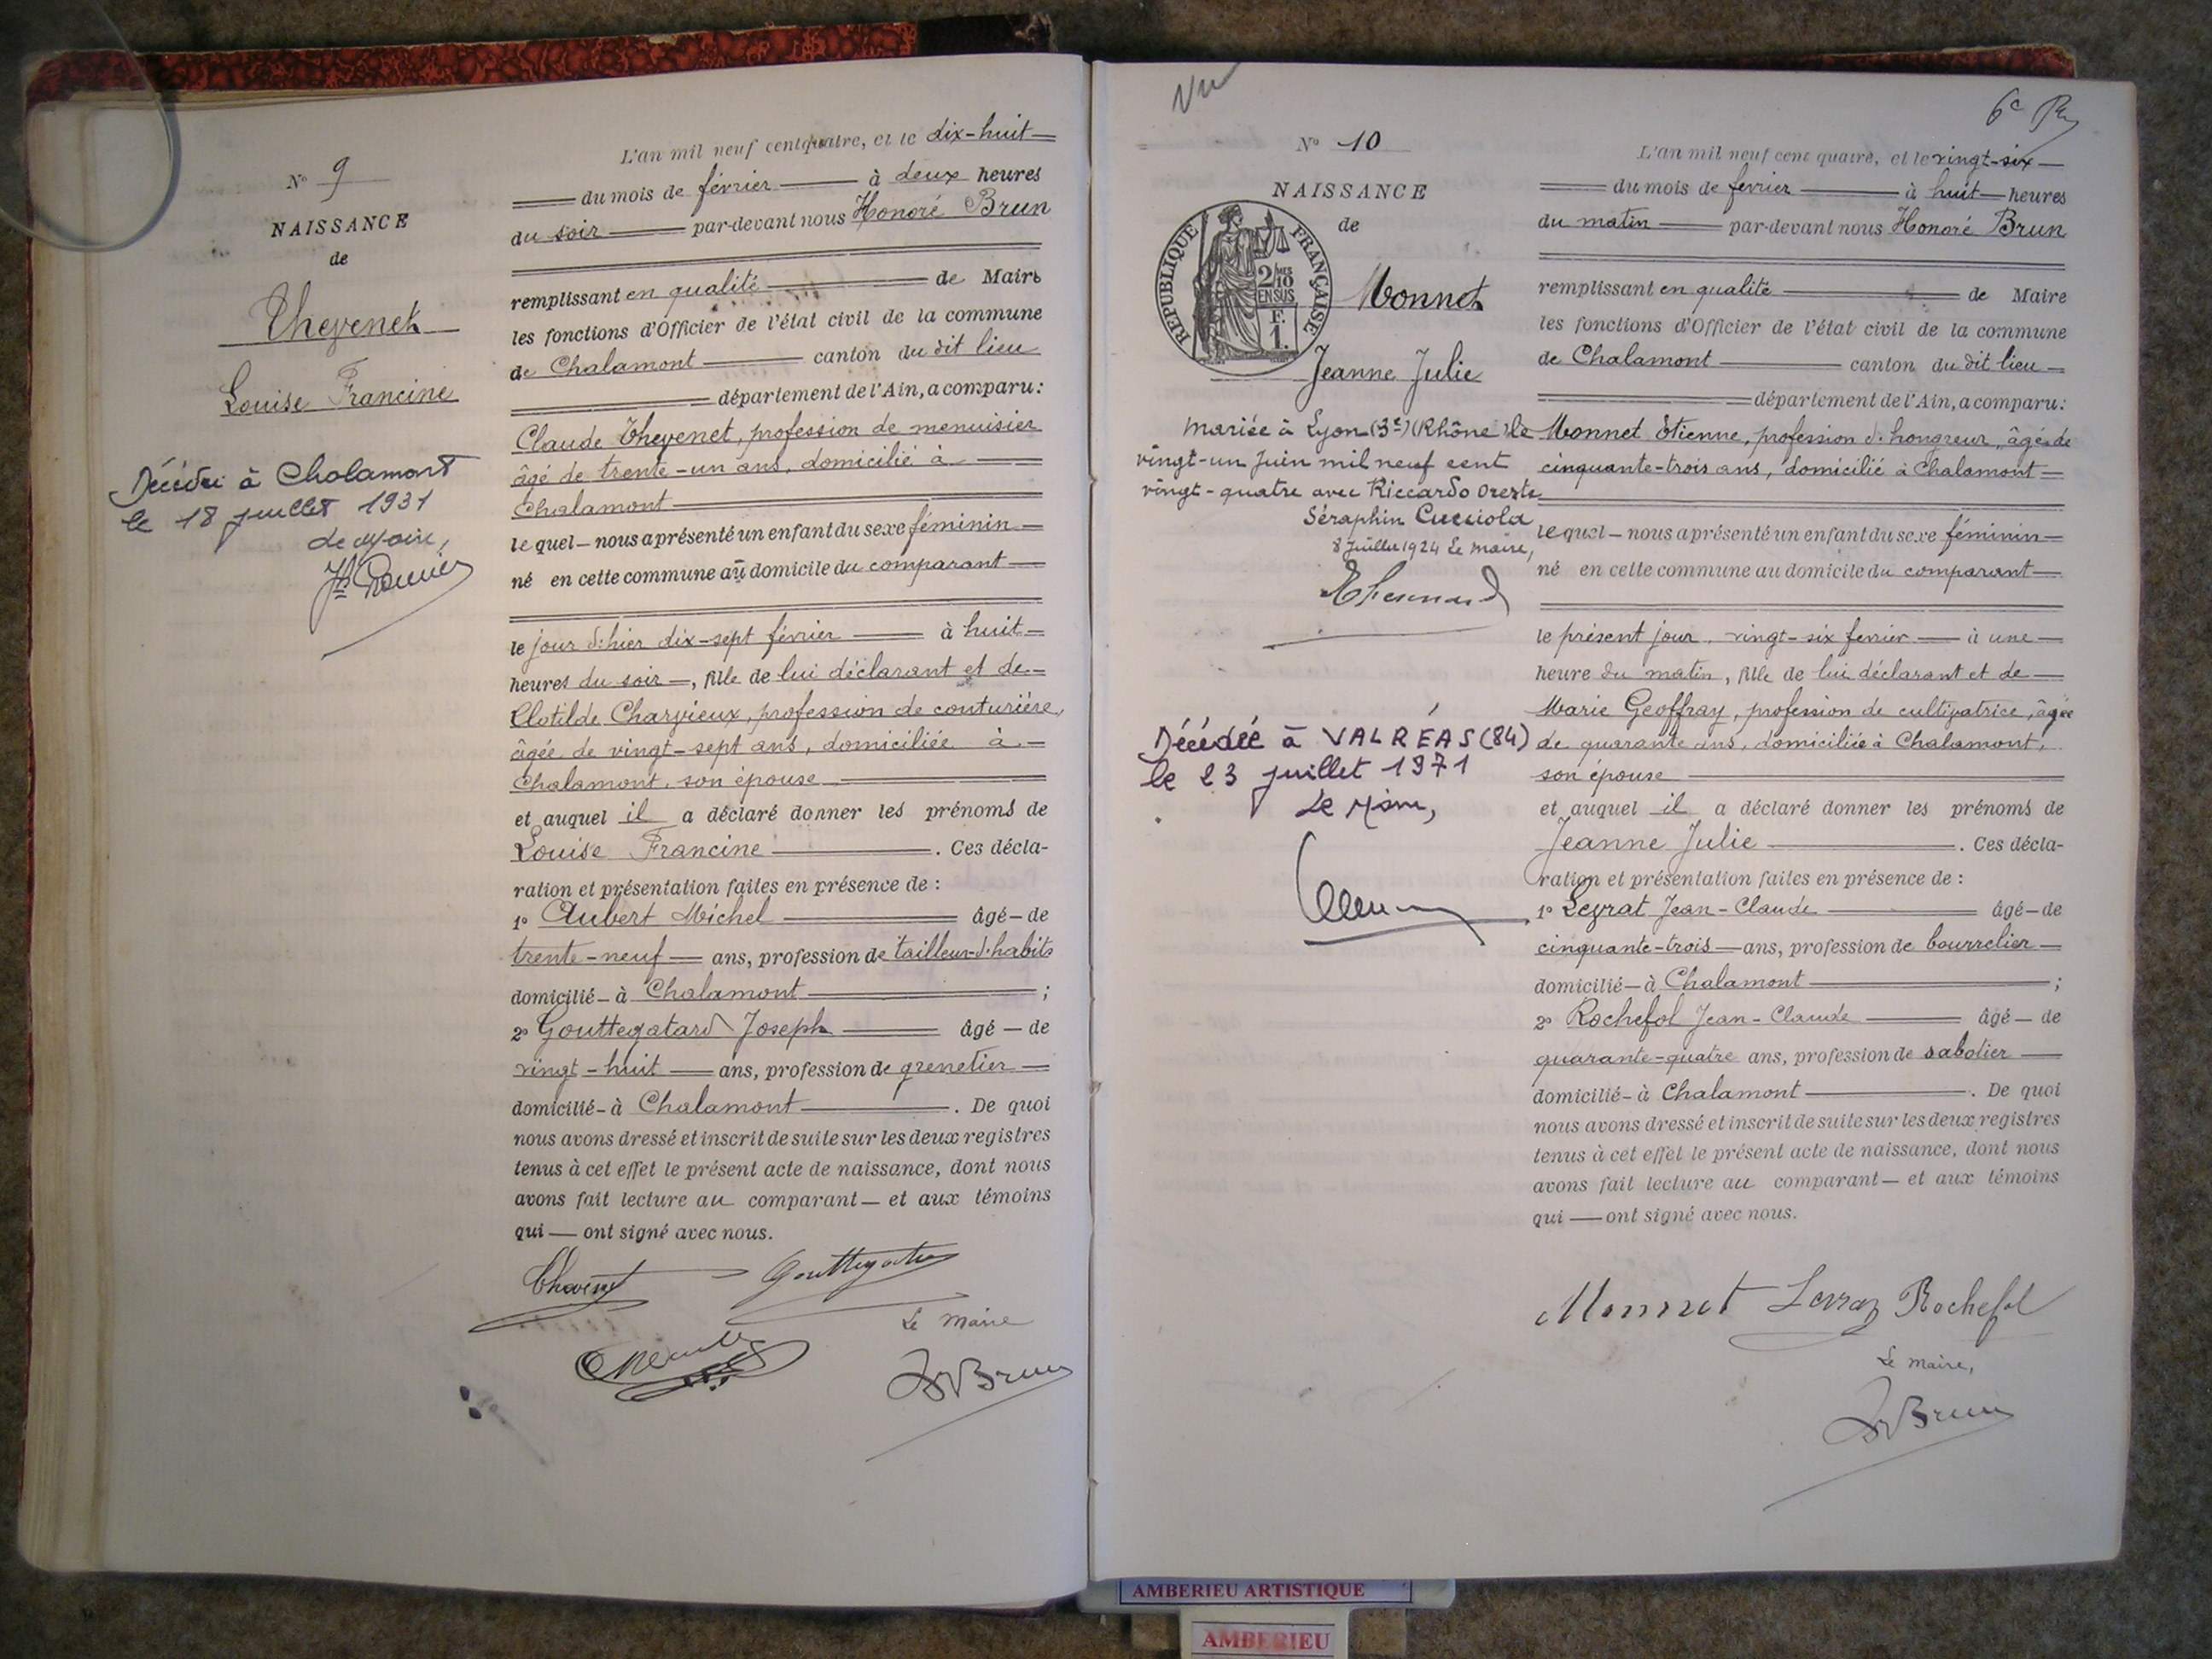 N° 9
NAISSANCE
de
Thevenet
Louise Francine
Décédée à Chalamont
le 18 juillet 1931
Le Maire,
L'an mil neuf cent quatre, et le dix-huit
du mois de février à deux heures
du soir par-devant nous Honoré Brun
remplissant en qualité de Maire
les fonctions d'Officier de l'état civil de la commune
de Chalamont canton du dit lieu
département de l'Ain, a comparu:
Claude Thevenet, profession de menuisier
âgé de trente-un ans, domicilié à
Chalamont
lequel nous a présenté un enfant du sexe féminin
né en cette commune au domicile du comparant
le jour d'hier dix-sept février à huit
heures du soir, fille de lui déclarant et de
Clotilde Charvieux, profession de couturière,
âgée de vingt-sept ans, domiciliée à
Chalamont, son épouse
et auquel il a déclaré donner les prénoms de
Louise Francine. Ces décla-
ration et présentation faites en présence de :
1° Aubert Michel âgé de
trente-neuf ans, profession de tailleur d'habits
domicilié à Chalamont ;
2° Gouttegatard Joseph âgé de
vingt-huit ans, profession de grenetier
domicilié à Chalamont. De quoi
nous avons dressé et inscrit de suite sur les deux registres
tenus à cet effet le présent acte de naissance, dont nous
avons fait lecture au comparant et aux témoins
qui ont signé avec nous.
Le Maire
Brun
Vu
6e
N° 10
NAISSANCE
de
REPUBLIQUE FRANÇAISE
2/10 MES
EN SUS
F.
1.
Monnet
Jeanne Julie
Mariée à Lyon (3e) (Rhône) le
vingt-un Juin mil neuf cent
vingt-quatre avec Riccardo Oreste
Séraphin Cucciola
8 Juillet 1924 Le Maire,
Décédée à VALRÉAS (84)
le 23 juillet 1971
Le Maire,
L'an mil neuf cent quatre, et le vingt-six
du mois de fevrier à huit heures
du matin par-devant nous Honoré Brun
remplissant en qualité de Maire
les fonctions d'Officier de l'état civil de la commune
de Chalamont canton du dit lieu
département de l'Ain, a comparu:
Monnet Etienne, profession d'hongreur, âgé de
cinquante-trois ans, domicilié à Chalamont
lequel nous a présenté un enfant du sexe féminin
né en cette commune au domicile du comparant
le présent jour, vingt-six fevrier à une
heure du matin, fille de lui déclarant et de
Marie Geoffray, profession de cultivatrice, âgée
de quarante ans, domiciliée à Chalamont,
son épouse
et auquel il a déclaré donner les prénoms de
Jeanne Julie. Ces décla-
ration et présentation faites en présence de :
1° Leyrat Jean-Claude âgé de
cinquante-trois ans, profession de bourrelier
domicilié à Chalamont ;
2° Rochefol Jean-Claude âgé de
quarante-quatre ans, profession de sabotier
domicilié à Chalamont. De quoi
nous avons dressé et inscrit de suite sur les deux registres
tenus à cet effet le présent acte de naissance, dont nous
avons fait lecture au comparant et aux témoins
qui ont signé avec nous.
Monnet Rochefol
Le Maire,
Brun
AMBERIEU ARTISTIQUE
AMBERIEU